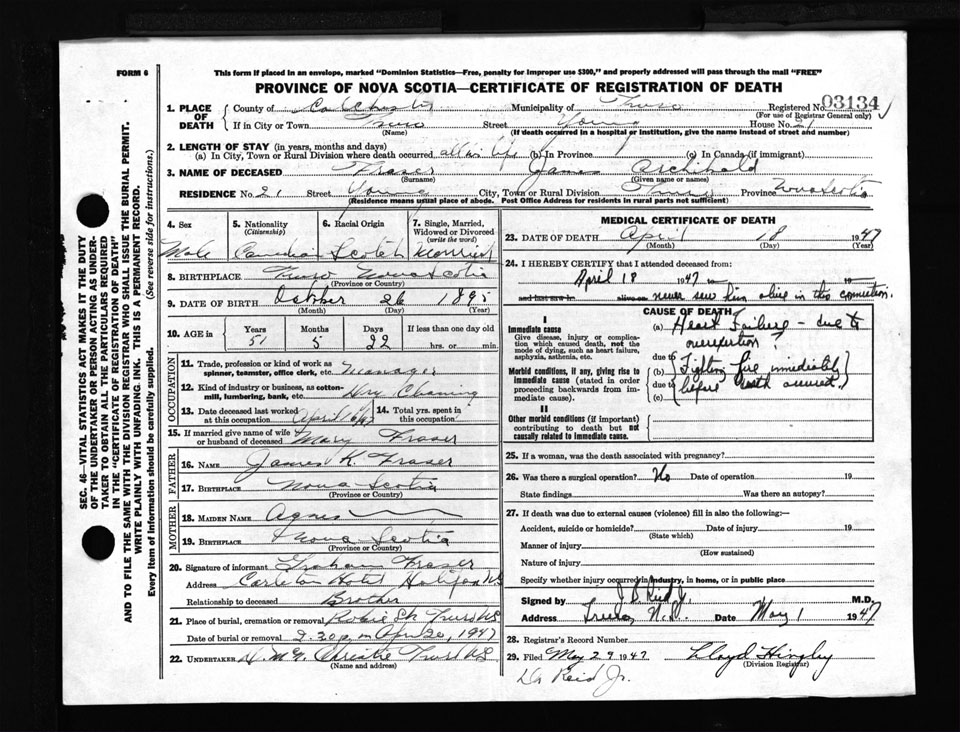 FORM 6
This form if placed in an envelope, marked "Dominion Statistics—Free, penalty for improper use $300," and properly addressed will pass through the mail "FREE"
PROVINCE OF NOVA SCOTIA—CERTIFICATE OF REGISTRATION OF DEATH
SEC. 46—VITAL STATISTICS ACT MAKES IT THE DUTY
OF THE UNDERTAKER OR PERSON ACTING AS UNDER-
TAKER TO OBTAIN ALL THE PARTICULARS REQUIRED
IN THE "CERTIFICATE OF REGISTRATION OF DEATH"
AND TO FILE THE SAME WITH THE DIVISION REGISTRAR WHO SHALL ISSUE THE BURIAL PERMIT.
WRITE PLAINLY WITH UNFADING INK. THIS IS A PERMANENT RECORD.
Every item of Information should be carefully supplied. (See reverse side for instructions.)
1. PLACE OF DEATH County of Colchester Municipality of Truro Registered No. 03134
(For use of Registrar General only)
If in City or Town Truro Street Young House No. 21
(Name) (If death occurred in a hospital or institution, give the name instead of street and number)
2. LENGTH OF STAY (in years, months and days)
(a) In City, Town or Rural Division where death occurred all his life (b) In Province (c) In Canada (if immigrant)
3. NAME OF DECEASED Fraser James Archibald
(Surname) (Given name or names)
RESIDENCE No. 21 Street Young City, Town or Rural Division Truro Province Nova Scotia
(Residence means usual place of abode. Post Office Address for residents in rural parts not sufficient)
4. Sex
Male
5. Nationality
(Citizenship)
Canadian
6. Racial Origin
Scotch
7. Single, Married,
Widowed or Divorced
(write the word)
Married
8. BIRTHPLACE Truro Nova Scotia
(Province or Country)
9. DATE OF BIRTH October 26 1895
(Month) (Day) (Year)
10. AGE in Years Months Days If less than one day old
51 5 22 hrs. or min.
OCCUPATION
11. Trade, profession or kind of work as
spinner, teamster, office clerk, etc. Manager
12. Kind of industry or business, as cotton-
mill, lumbering, bank, etc. Dry Cleaning
13. Date deceased last worked
at this occupation April
14. Total yrs. spent in
this occupation
15. If married give name of wife
or husband of deceased Mary Fraser
FATHER
16. NAME James K. Fraser
17. BIRTHPLACE Nova Scotia
(Province or Country)
MOTHER
18. MAIDEN NAME Agnes
19. BIRTHPLACE Nova Scotia
(Province or Country)
20. Signature of informant Graham Fraser
Address Carleton Hotel Halifax NS
Relationship to deceased Brother
21. Place of burial, cremation or removal Robie St. Truro NS
Date of burial or removal 2.30 p.m Apr 20, 1947
22. UNDERTAKER Christie Truro NS
(Name and address)
MEDICAL CERTIFICATE OF DEATH
23. DATE OF DEATH April 18 1947
(Month) (Day) (Year)
24. I HEREBY CERTIFY that I attended deceased from:
April 18 1947 to 19
and last saw h alive on never saw him alive in this connection.
CAUSE OF DEATH
I
Immediate cause
Give disease, injury or complication
which caused death, not the
mode of dying, such as heart failure,
asphyxia, asthenia, etc.
(a) Heart Failure – due to
overexertion?
due to
Morbid conditions, if any, giving rise to
immediate cause (stated in order
proceeding backwards from immediate
cause).
(b) Fighting fire immediately
due to before death occurred.
(c)
II
Other morbid conditions (if important)
contributing to death but not
causally related to immediate cause.
25. If a woman, was the death associated with pregnancy?
26. Was there a surgical operation? No Date of operation 19
State findings Was there an autopsy?
27. If death was due to external causes (violence) fill in also the following:—
Accident, suicide or homicide? Date of injury 19
(State which)
Manner of injury
(How sustained)
Nature of injury
Specify whether injury occurred in industry, in home, or in public place
Signed by J B Reid Jr. M.D.
Address Truro, N.S. Date May 1 1947
28. Registrar's Record Number
29. Filed May 29 1947 Lloyd Hingley
(Division Registrar)
Dr Reid Jr.